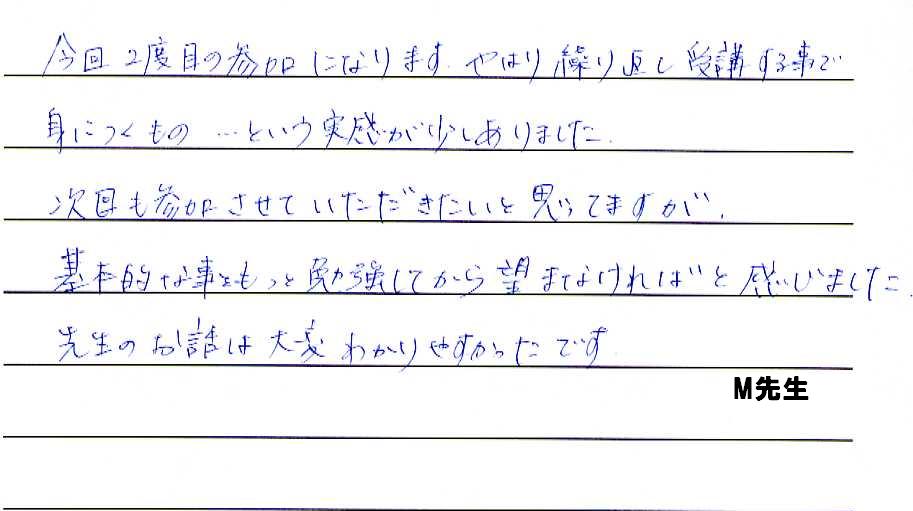 今回2度目の参加になります。やはり繰り返し受講する事で
身につくもの…という実感が少しありました。
次回も参加させていただきたいと思ってますが、
基本的な事をもっと勉強してから望まなければと感じました。
先生のお話は大変わかりやすかったです。
M先生